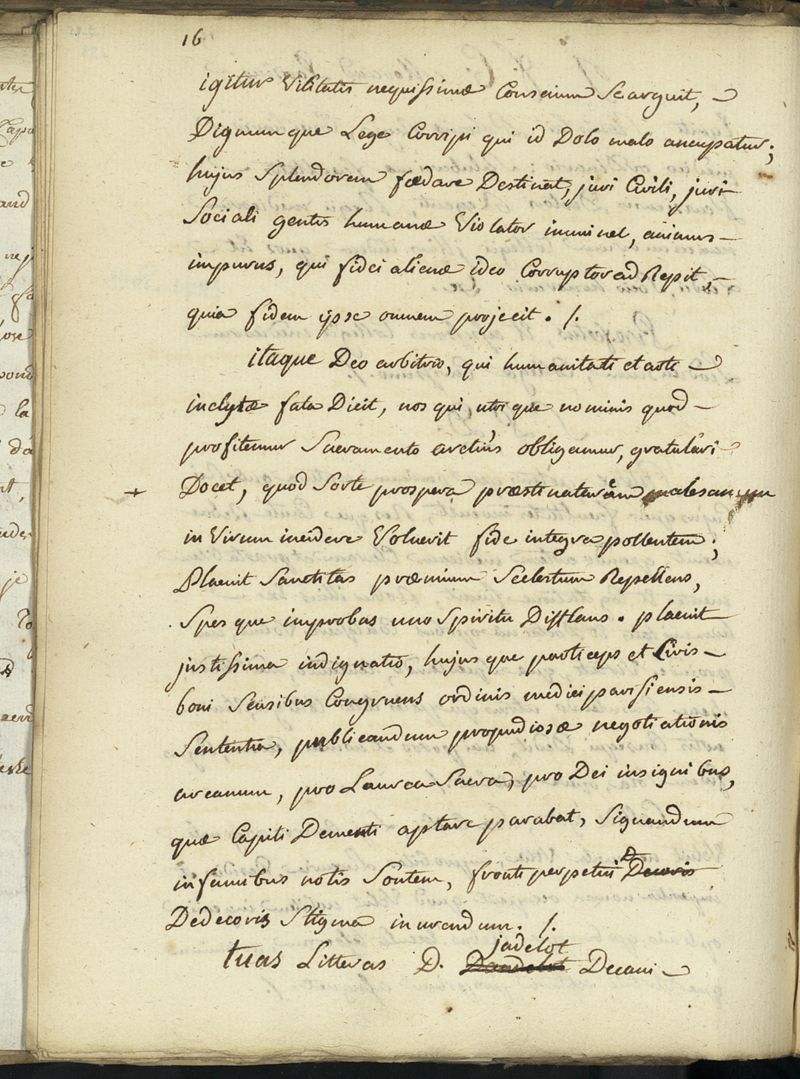 16
igitur Vilitatis nequissimæ Conscium Se arguit,
Dignumque Lege Corripi qui id Dolo malo aucupatur;
hujus Splendorem fœdare Destinat, juri Civili, juri
Sociali gentis humanæ Violator imminet, animus
impurus, qui fidei alienæ ideo Corruptor adRepit,
quia fidem ipse omnem projecit. /.
itaque Deo arbitrio, qui humanitati et arti
inclytæ fata Dicit, nos qui utrique nominis quod
profitemur Sacramento arctius obligamur, gratulari
Docet, quod Sorte prospera malesanum
in Virum incidere Voluerit fide integra pollentem;
Placuit Sanctitas præmium Scelestum Repellens,
Spesque improbas uno Spiritu Difflans. placuit
justissima indignatio, hujusque particeps et Civis
boni Sensibus Congruens ordinis medici parisiensis
Sententia, publicandum propudiosæ negotiationis
arcanum, pro Laurea Sacra, pro Dei insignibus,
quæ Capiti Dementi aptare parabat, Signandum
infamibus notis Sontem, fronti perpetui
Dedecoris Stigma inurendum. /.
jadelot
tuas Litteras D. Decani